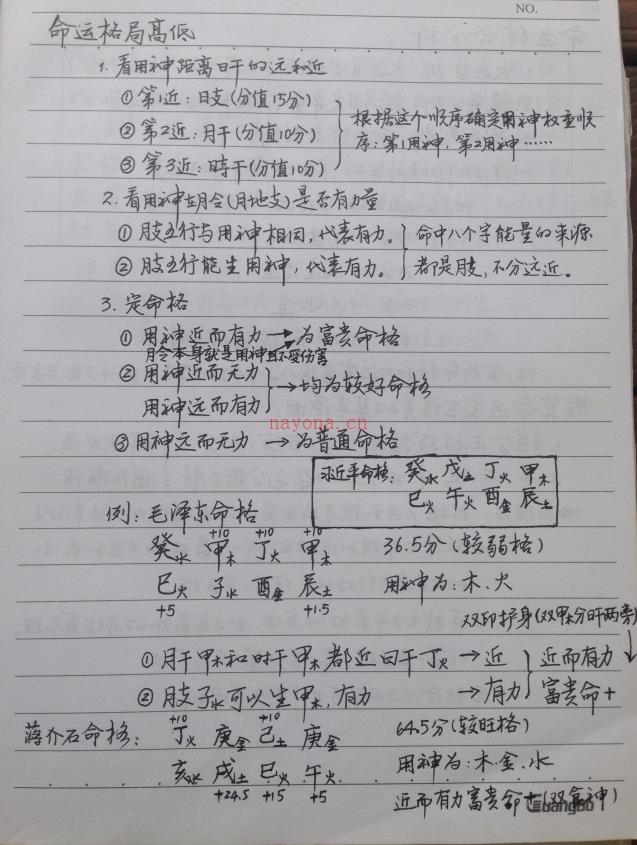 NO.
命运格局高低
1. 看用神距离日干的远和近
① 第1近：日支（分值15分）
② 第2近：月干（分值10分）
③ 第3近：时干（分值10分）
根据这个顺序确定用神权重顺
序：第1用神，第2用神……
2. 看用神在月令（月地支）是否有力量
① 月支五行与用神相同，代表有力。
② 月支五行能生用神，代表有力。
命中八个字能量的来源
都是月支，不分远近。
3. 定命格
① 用神近而有力→为富贵命格
月令本身就是用神且不受伤害
② 用神近而无力
用神远而有力
→均为较好命格
③ 用神远而无力 →为普通命格
习近平命格： 癸水 戊土 丁火 甲木
巳火 午火 酉金 辰土
例：毛泽东命格
+10 +10
癸水 甲木 丁火 甲木
36.5分（较弱格）
巳火 子水 酉金 辰土
用神为：木、火
+5 +1.5
双印护身（双甲木分日干两旁）
① 月干甲木和时干甲木都近日干丁火→近
② 月支子水可以生甲木，有力 →有力
近而有力
富贵命+
蒋介石命格：
+10 +10
丁火 庚金 己土 庚金
64.5分（较旺格）
亥水 戌土 巳火 午火
用神为：木、金、水
+24.5 +15 +5
近而有力富贵命+（双食神）
GuangBo
nayona.cn